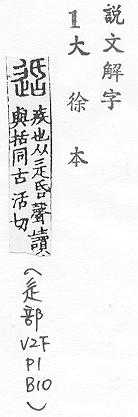 說文解字
1大徐本
适
疾也从辵昏聲讀
與括同古活切
（辵部
V2F
P1
B10）